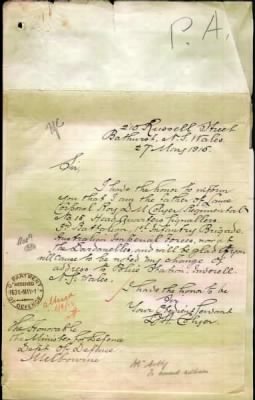 P.A.
210 Russell Street
Bathurst, N.S. Wales.
27 May 1915.
Sir,
I have the honor to inform
you that I am the father of Lance
Corporal Roy L. M. Regimental
No 15, Headquarters Signallers
Battalion, 1st Infantry Brigade,
Australian Imperial Forces, now at
the Dardanelles and will be glad if you
will cause to be noted my change of
address to Police Station, Inverell
N.S. Wales.
I have the honor to be
Sir
Your Obedient Servant
DEPARTMENT
OF DEFENCE
The Honorable
The Minister for Defence
Dept of Defence
Melbourne